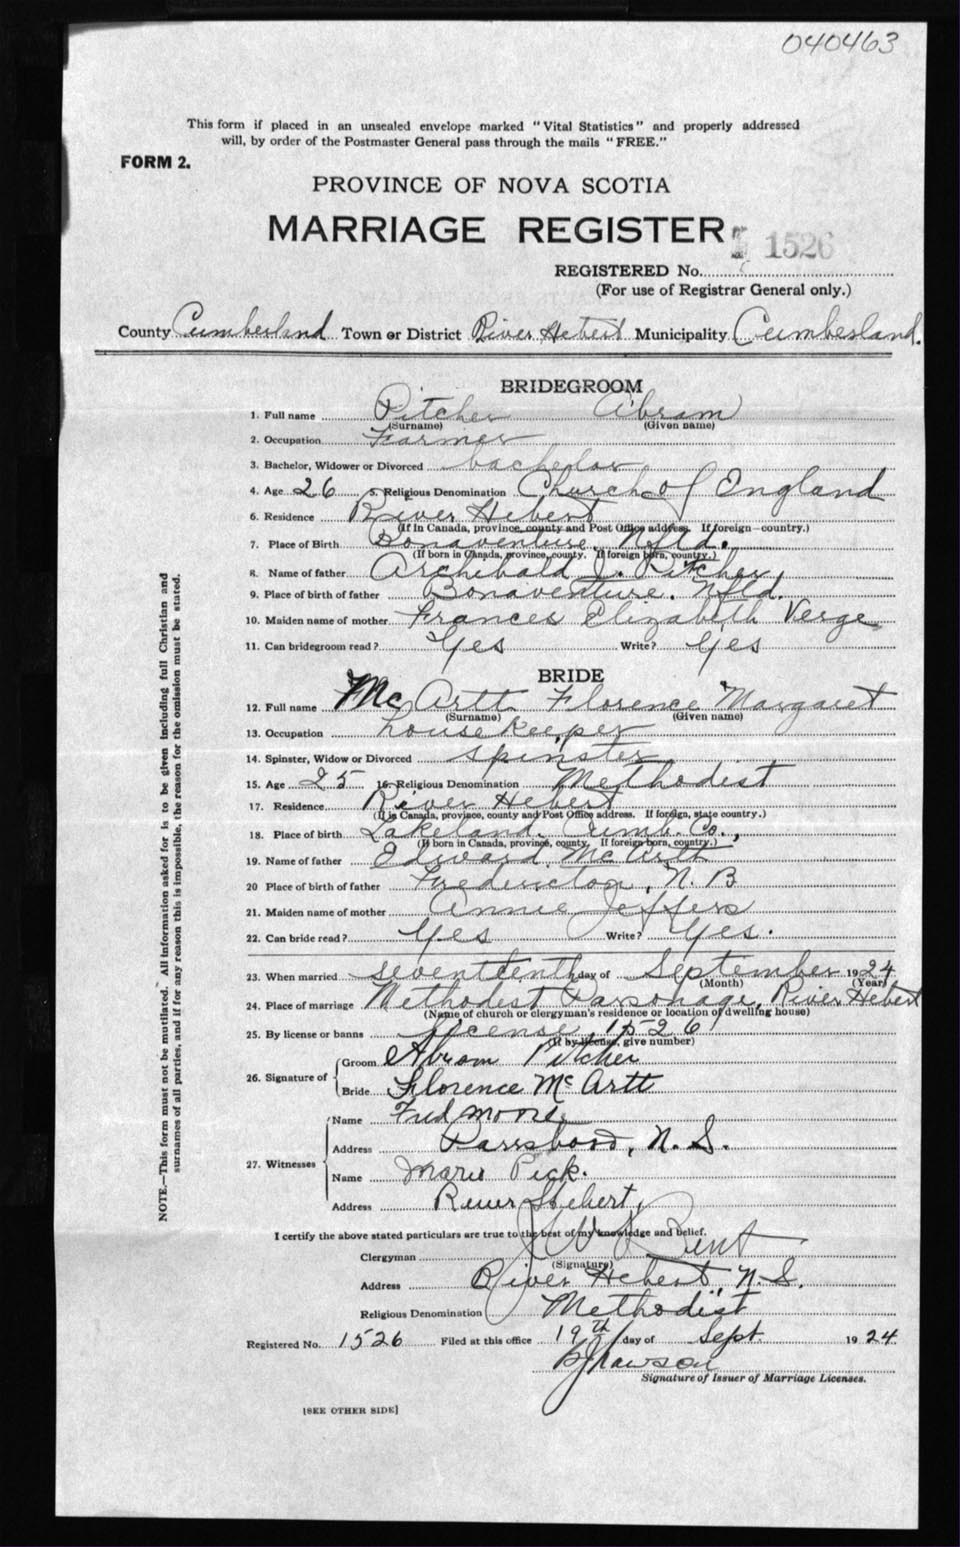 040463
This form if placed in an unsealed envelope marked "Vital Statistics" and properly addressed
will, by order of the Postmaster General pass through the mails "FREE."
FORM 2.
PROVINCE OF NOVA SCOTIA
MARRIAGE REGISTER
1526
REGISTERED No.
(For use of Registrar General only.)
County Cumberland Town or District River Hebert Municipality Cumberland.
BRIDEGROOM
1. Full name Pitcher Abram
(Surname) (Given name)
2. Occupation Farmer
3. Bachelor, Widower or Divorced bachelor
4. Age 26 5. Religious Denomination Church of England
6. Residence River Hebert
(If in Canada, province, county and Post Office address. If foreign—country.)
7. Place of Birth Bonaventure Nfld.
(If born in Canada, province, county. If foreign born, country.)
8. Name of father Archibald J. Pitcher
9. Place of birth of father Bonaventure. Nfld.
10. Maiden name of mother Frances Elizabeth Verge
11. Can bridegroom read? Yes Write? Yes
BRIDE
12. Full name McArtt Florence Margaret
(Surname) (Given name)
13. Occupation housekeeper
14. Spinster, Widow or Divorced spinster
15. Age 25 16. Religious Denomination Methodist
17. Residence River Hebert
(If in Canada, province, county and Post Office address. If foreign, state country.)
18. Place of birth Lakeland. Cumb. Co.,
(If born in Canada, province, county. If foreign born, country.)
19. Name of father Edward McArtt
20 Place of birth of father Fredericton, N. B
21. Maiden name of mother Annie Jeffers
22. Can bride read? Yes Write? Yes.
23. When married seventeenth day of September 1924
(Month) (Year)
24. Place of marriage Methodist Parsonage, River Hebert
(Name of church or clergyman's residence or location of dwelling house)
25. By license or banns license, 1526
(If by license, give number)
26. Signature of Groom Abram Pitcher
Bride Florence McArtt
27. Witnesses
Name Fred Moore
Address Parrsboro, N. S.
Name Marie Pick.
Address River Hebert,
I certify the above stated particulars are true to the best of my knowledge and belief.
Clergyman Bent
(Signature)
Address River Hebert, N. S.
Religious Denomination Methodist
Registered No. 1526 Filed at this office 19th day of Sept. 1924
Rawson
Signature of Issuer of Marriage Licenses.
[SEE OTHER SIDE]
NOTE.—This form must not be mutilated. All information asked for is to be given including full Christian and
surnames of all parties, and if for any reason this is impossible, the reason for the omission must be stated.